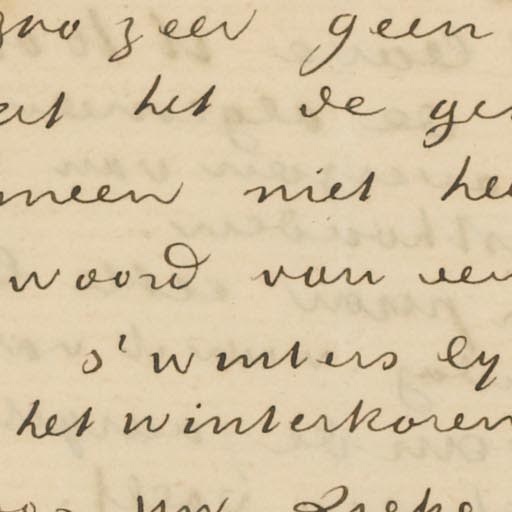 zoo zeer geen
het de ge
meen niet
woord van een
s'winters
het winterkoren